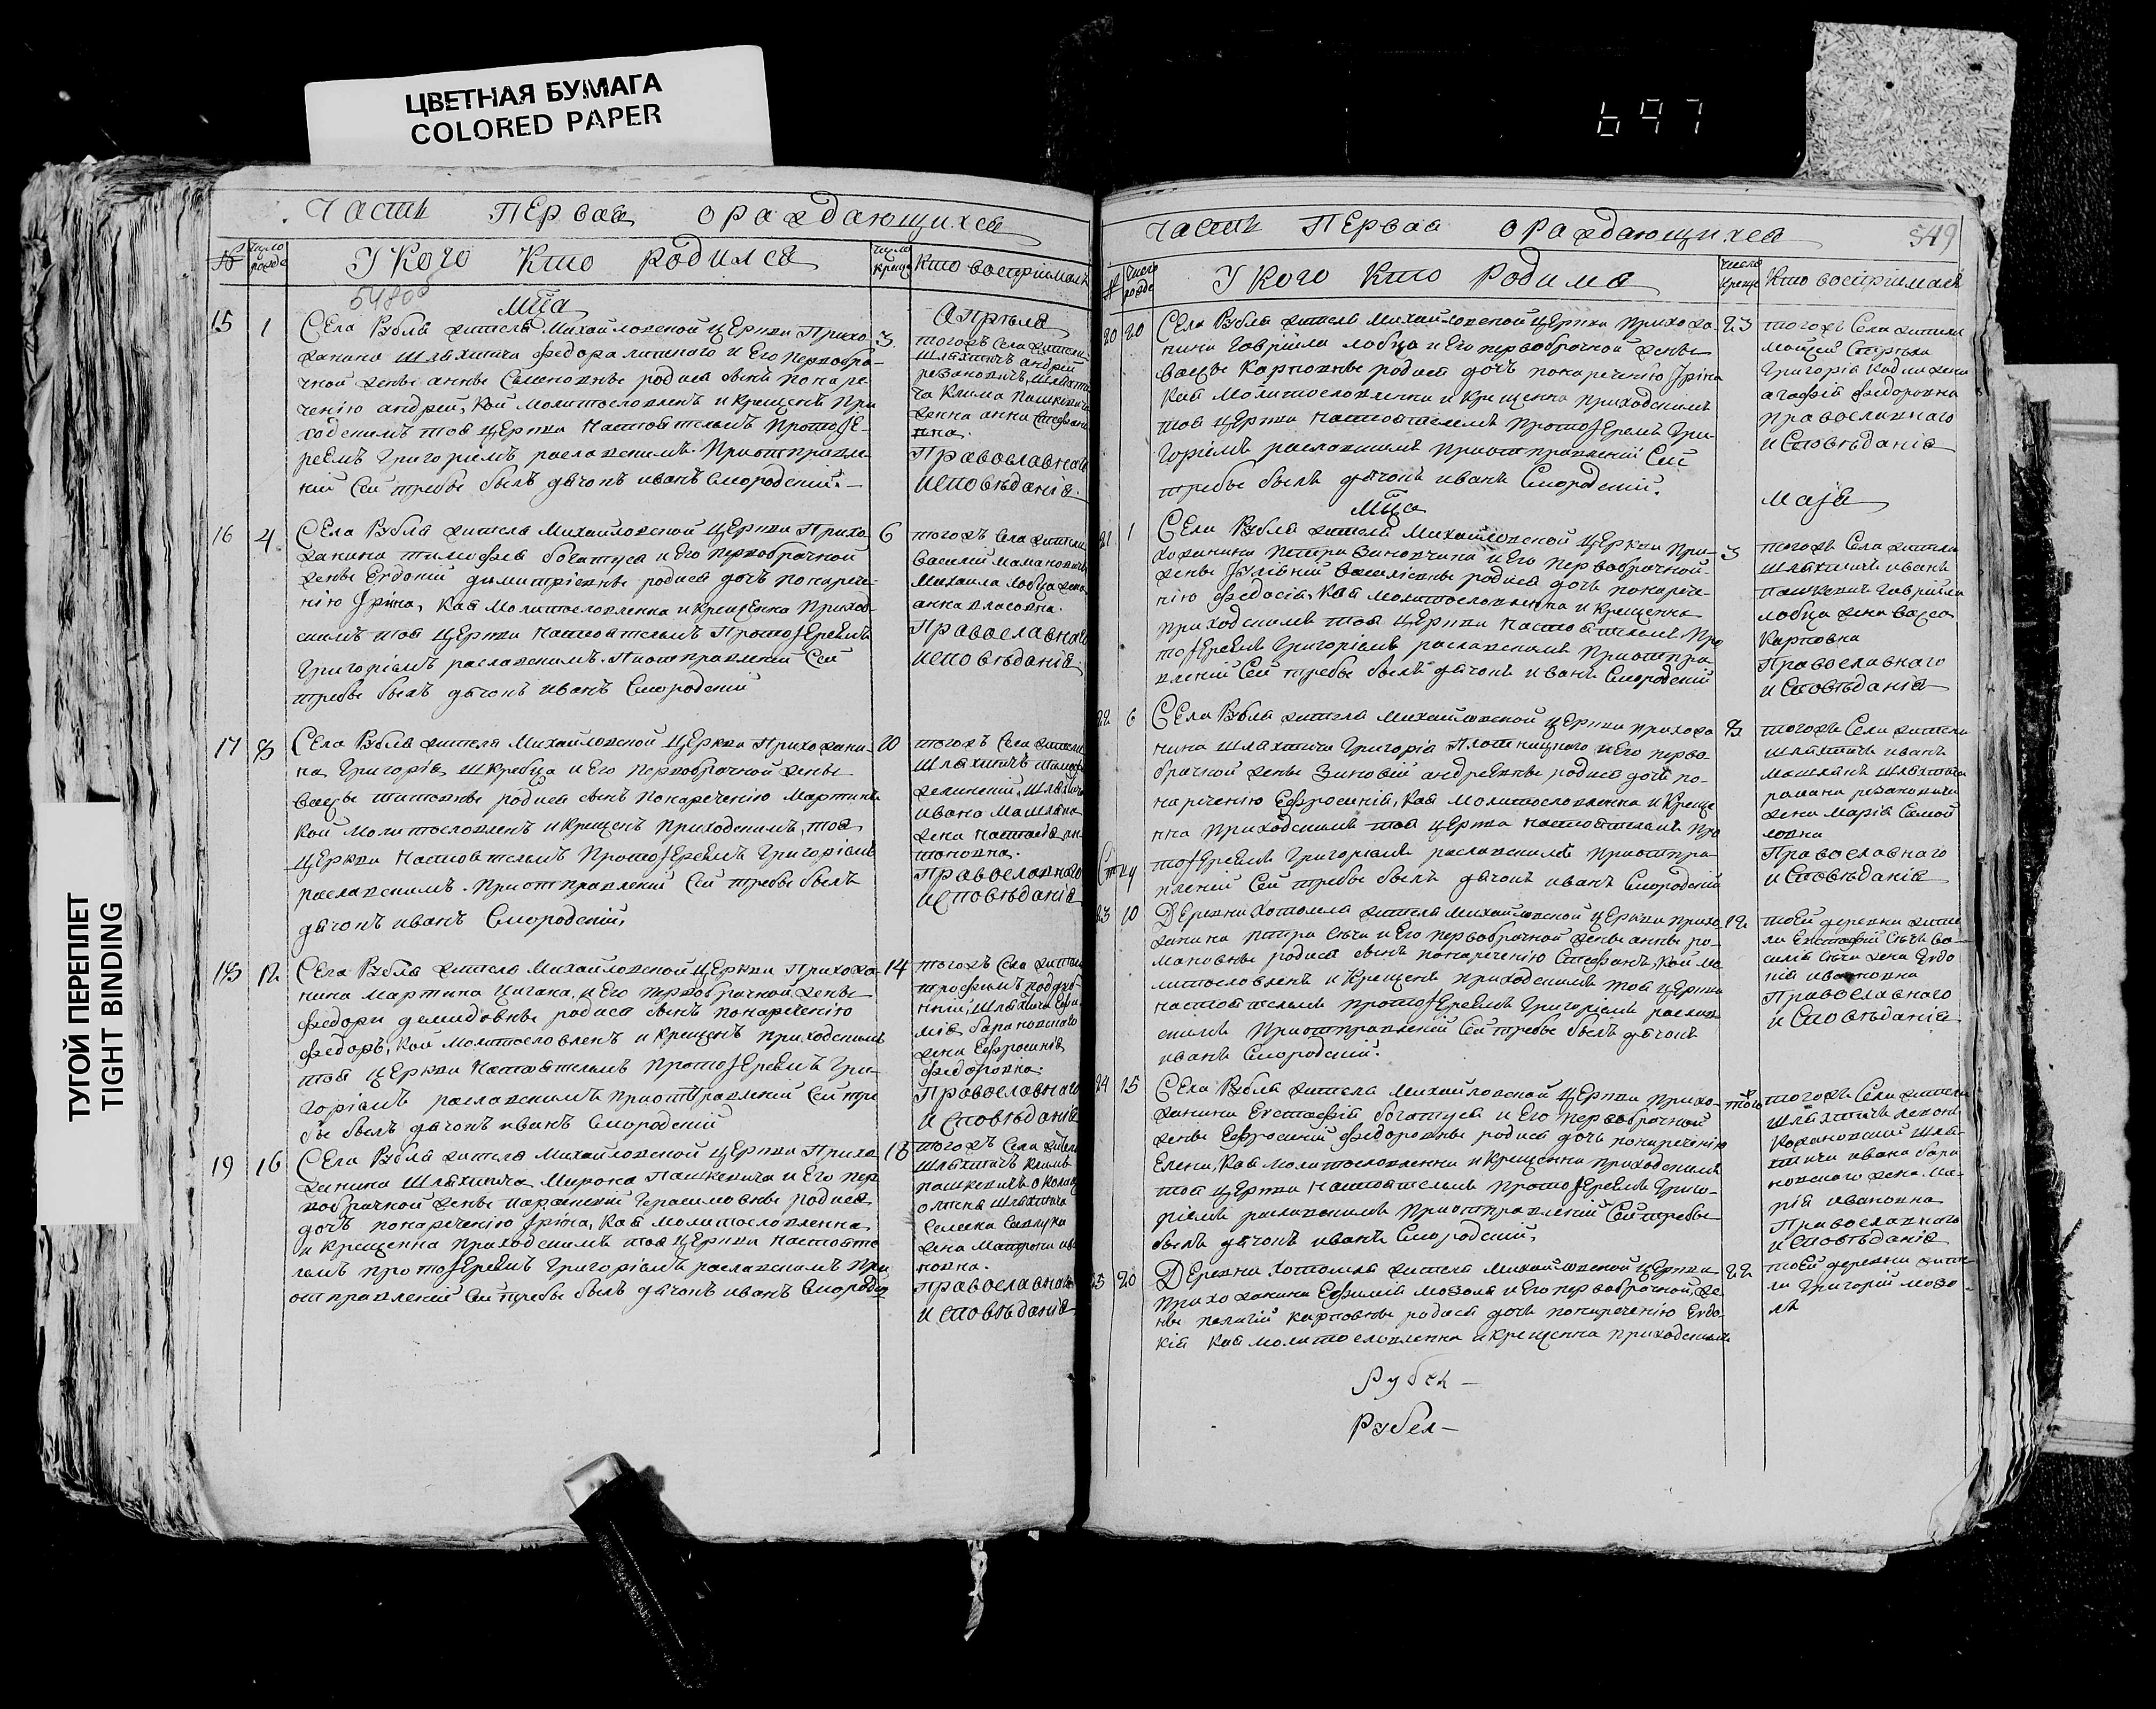 ЦВЕТНАЯ БУМАГА
COLORED PAPER
697
ТУГОЙ ПЕРЕПЛЕТ
TIGHT BINDING
Часть Первая ораждающихся
№ число рожде
У кого кто родился
число креще
кто воспрiималъ
Мца
Апрѣля
15 1 3
Села Рубля жителя Михайловской Церкви Прихо
жанина шляхтича федора и Его первобра-
чной жены анны Семеновны родися сынъ понаре
ченiю андрей, кой молитвословленъ и крещенъ При
ходскимъ тоя Церкви настоятелемъ ПротоIе-
реемъ Григорiемъ раславскимъ. Приотправле
нiи сей требы былъ дячокъ иванъ Смородскiй.
тогожъ села жители
шляхтичъ андрей
резановичъ, шляхти
ча Клима пашкевича
женна анна Стефано
вна.
Православнаго
исповѣданiя.
16 4 6
Села Рубля жителя Михайловской Церкви Прихо
жанина тимофея богатуся и Его первобрачной
жены Евдокiи димитрiевны родися дочь понарече
нiю Iрина, кая молитвословленна и крещенна Приход
скимъ тоя Церкви настоятелемъ ПротоIереемъ
Григорiемъ раславскимъ. Приотправленiи сей
требы былъ дячокъ иванъ Смородскiй
тогожъ села жители
василiй
михаила лобца жена
анна власовна.
Православнаго
исповѣданiя.
17 8 10
Села Рубля жителя Михайловской Церкви Прихожани-
на Григорiя шкребца и Его первобрачной жены
васцы титовны родися сынъ понареченiю Мартинъ
кой молитвословленъ и крещенъ Приходскимъ тоя
Церкви настоятелемъ ПротоIереемъ Григорiемъ
раславскимъ. Приотправленiи сей требы былъ
дячокъ иванъ Смородскiй,
тогожъ села жители
шляхтичъ
ивана Машляка
жена
Православнаго
исповѣданiя
18 12 14
Села Рубля жителя Михайловской Церкви Прихожа-
нина Мартина Цигана, и Его первобрачной жены
федори демидовны родися сынъ понареченiю
федоръ, кой молитвословленъ и крещенъ приходскимъ
тоя Церкви настоятелемъ ПротоIереемъ Гри-
горiемъ раславскимъ приотправленiи сей тре
бы былъ дячокъ иванъ Смородскiй
тогожъ села жители
трофимъ
шляхтича
барановскаго
жена Ефросинiя
федоровна.
Православнаго
исповѣданiя
19 16 18
Села Рубля жителя Михайловской Церкви Прихо
жанина шляхтича, Мирона Пашкевича и Его пер
вобрачной жены параскевiи Герасимовны родися
дочь понареченiю Iрина, кая молитвословленна
и крещенна приходскимъ тоя Церкви настояте
лемъ протоIереемъ Григорiемъ раславскимъ при
отправленiи сей требы былъ дячокъ иванъ Смородск
тогожъ села жители
шляхтичъ климъ
пашкевичъ
шляхтича
жена Матрона ива
новна.
Православнаго
исповѣданiя
Часть Первая ораждающихся
549
№ число рожде
У кого кто родился
число креще
кто воспрiималъ
20 20 23
Села Рубля жителя Михайловской Церкви прихожа-
нина Гаврiила лобца и Его первобрачной жены
васцы Карповны родися дочь понареченiю Iрина
кая молитвословленна и крещенна приходскимъ
тоя Церкви настоятелемъ протоIереемъ Гри-
горiемъ раславскимъ приотправленiи сей
требы былъ дячокъ иванъ Смородскiй.
тогожъ села жители
Мойсей
Григорiя жена
агафiя федоровна
Православнаго
исповѣданiя
Мца
Маjя
21 1 3
Села Рубля жителя Михайловской Церкви при-
хожанина Петра Зиновчика и Его первобрачной
жены Iулiянiи василiевны родися дочь понарече-
нiю федосiя, кая молитвословленна и крещенна
приходскимъ тоя Церкви настоятелемъ, Про
тоIереемъ Григорiемъ раславскимъ Приотпра-
вленiи сей требы былъ дячокъ иванъ Смородскiй
тогожъ села жители
шляхтичъ иванъ
пашкевичъ Гаврiила
лобца жена васса
Карповна
Православнаго
исповѣданiя
22 6 8
Села Рубля жителя Михайловской Церкви прихожа
нина шляхтича Григорiя Плотницкого и Его перво
брачной жены Зиновiи андреевны родися дочь по-
нареченiю Ефросинiя, кая молитвословленна и креще
нна приходскимъ тоя Церкви настоятелемъ Про
тоIереемъ Григорiемъ раславскимъ приотпра-
вленiи сей требы былъ дячокъ иванъ Смородскiй
тогожъ села жители
шляхтичъ иванъ
машлякъ шляхтича
романа резановича
жена Марiя Самой
ловна
Православнаго
исповѣданiя
23 10 12
Деревни Хотомля жителя Михайловской Церкви прихо
жанина петра Сычи и Его первобрачной жены анны ро-
мановны родися сынъ понареченiю Стефанъ, кой мо
литвословленъ и крещенъ приходскимъ тоя Церкви
настоятелемъ протоIереемъ Григорiемъ раслав
скимъ приотправленiи сей требы былъ дячокъ
иванъ Смородскiй.
тоей деревни жите
ли Евстафiй Сычъ ва-
силiя Сычи жена Евдо
кiя ивановна
Православнаго
исповѣданiя
24 15 того
Села Рубля жителя Михайловской Церкви прихо-
жанина Евстафiя богатуся и Его первобрачной
жены Ефросинiи федоровны родися дочь понареченiю
Елена, кая молитвословленна и крещенна приходскимъ
тоя Церкви настоятелемъ ПротоIереемъ Григо-
рiемъ раславскимъ приотправленiи сей требы
былъ дячокъ иванъ Смородскiй,
тогожъ села жители
шляхтичъ
Кохановскiй шля-
хтича ивана бара
новского жена Ма-
рiя ивановна
Православнаго
исповѣданiя
25 20 22
Деревни Хотомля жителя Михайловской Церкви
прихожанина Ефимiя мозоля и Его первобрачной, же
ны пелагiи карповны родися дочь понареченiю Евдо
кiя кая молитвословленна и крещенна приходскимъ
тоей деревни жите
ли Григорiй мозо-
ль
Рубел-
Рубел-